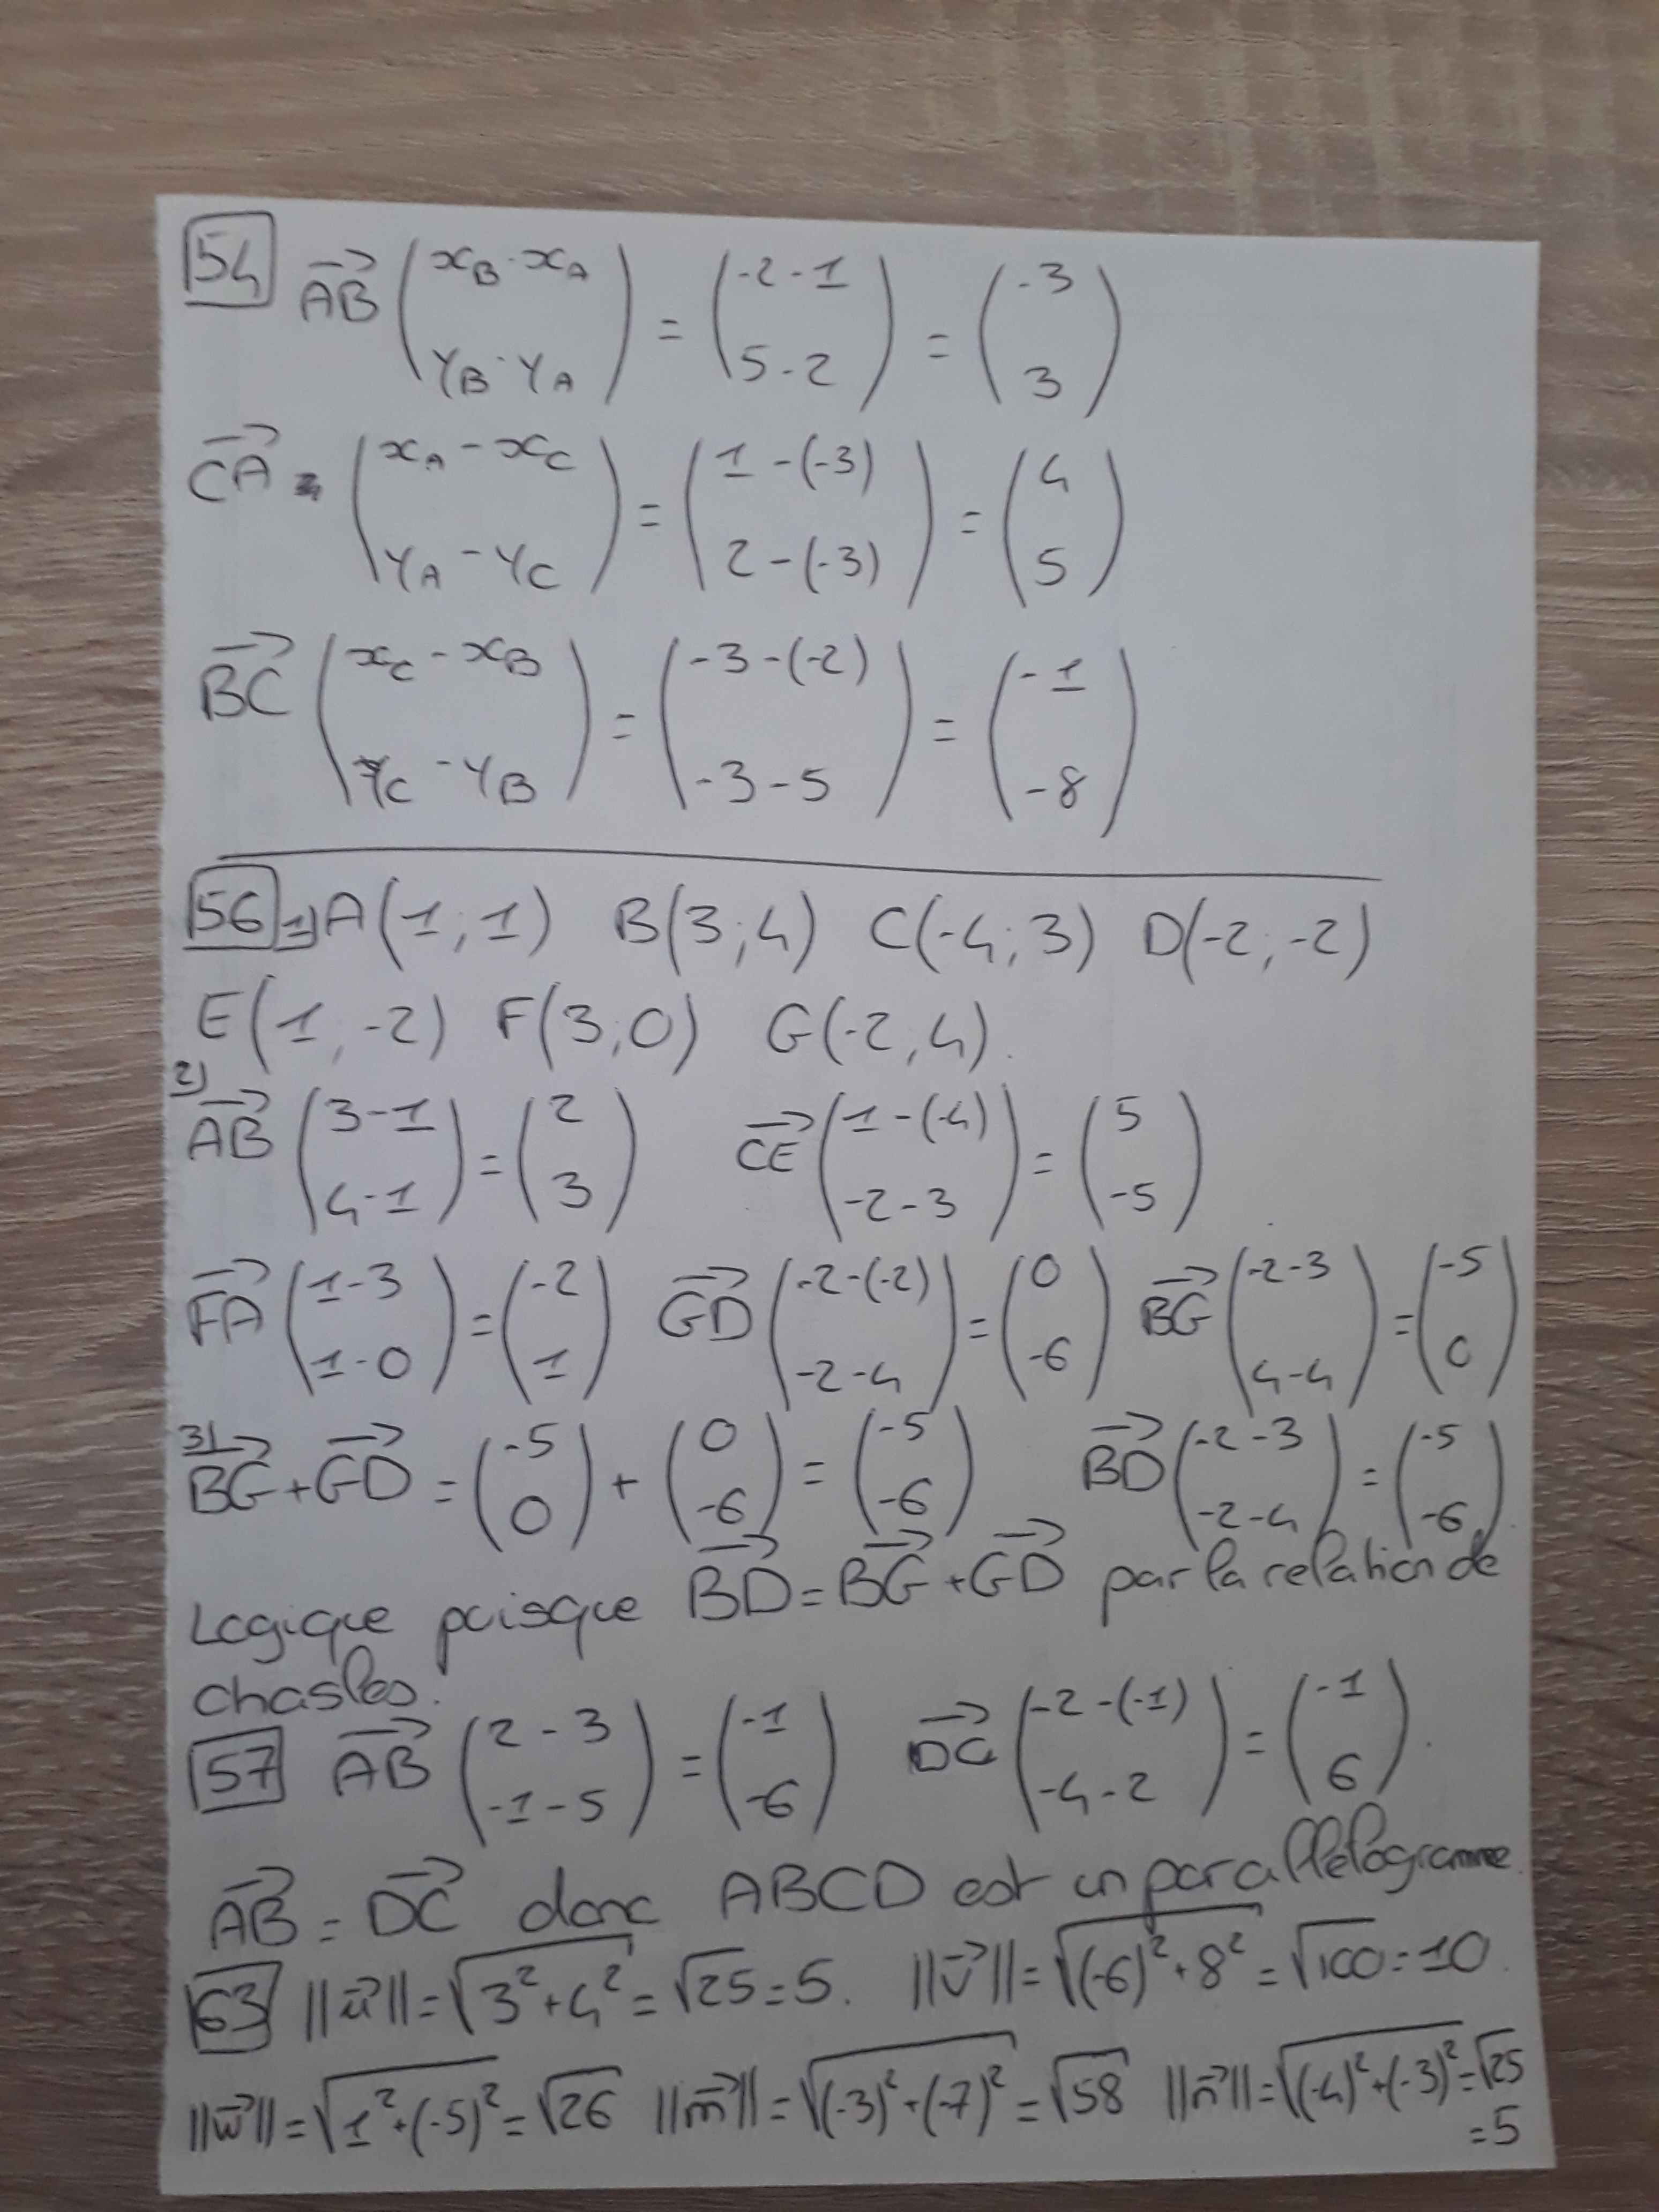 54 $\overrightarrow{AB} \begin{pmatrix} x_B - x_A \\ y_B - y_A \end{pmatrix} = \begin{pmatrix} -2-1 \\ 5-2 \end{pmatrix} = \begin{pmatrix} -3 \\ 3 \end{pmatrix}$
$\overrightarrow{CA} = \begin{pmatrix} x_A - x_C \\ y_A - y_C \end{pmatrix} = \begin{pmatrix} 1-(-3) \\ 2-(-3) \end{pmatrix} = \begin{pmatrix} 4 \\ 5 \end{pmatrix}$
$\overrightarrow{BC} \begin{pmatrix} x_C - x_B \\ y_C - y_B \end{pmatrix} = \begin{pmatrix} -3-(-2) \\ -3-5 \end{pmatrix} = \begin{pmatrix} -1 \\ -8 \end{pmatrix}$
56 1) A(1;1) B(3;4) C(-4;3) D(-2;-2)
E(1;-2) F(3;0) G(-2,4).
2) $\overrightarrow{AB} \begin{pmatrix} 3-1 \\ 4-1 \end{pmatrix} = \begin{pmatrix} 2 \\ 3 \end{pmatrix}$ $\overrightarrow{CE} \begin{pmatrix} 1-(-4) \\ -2-3 \end{pmatrix} = \begin{pmatrix} 5 \\ -5 \end{pmatrix}$
$\overrightarrow{FA} \begin{pmatrix} 1-3 \\ 1-0 \end{pmatrix} = \begin{pmatrix} -2 \\ 1 \end{pmatrix}$ $\overrightarrow{GD} \begin{pmatrix} -2-(-2) \\ -2-4 \end{pmatrix} = \begin{pmatrix} 0 \\ -6 \end{pmatrix}$ $\overrightarrow{BG} \begin{pmatrix} -2-3 \\ 4-4 \end{pmatrix} = \begin{pmatrix} -5 \\ 0 \end{pmatrix}$
3) $\overrightarrow{BG} + \overrightarrow{GD} = \begin{pmatrix} -5 \\ 0 \end{pmatrix} + \begin{pmatrix} 0 \\ -6 \end{pmatrix} = \begin{pmatrix} -5 \\ -6 \end{pmatrix}$ $\overrightarrow{BD} \begin{pmatrix} -2-3 \\ -2-4 \end{pmatrix} = \begin{pmatrix} -5 \\ -6 \end{pmatrix}$
Logique puisque $\overrightarrow{BD} = \overrightarrow{BG} + \overrightarrow{GD}$ par la relation de
chasles.
57 $\overrightarrow{AB} \begin{pmatrix} 2-3 \\ -1-5 \end{pmatrix} = \begin{pmatrix} -1 \\ -6 \end{pmatrix}$ $\overrightarrow{DC} \begin{pmatrix} -2-(-1) \\ -4-2 \end{pmatrix} = \begin{pmatrix} -1 \\ 6 \end{pmatrix}$.
$\overrightarrow{AB} = \overrightarrow{DC}$ donc ABCD est un parallélogramme.
63 $||\vec{u}|| = \sqrt{3^2+4^2} = \sqrt{25} = 5.$ $||\vec{v}|| = \sqrt{(-6)^2+8^2} = \sqrt{100} = 10.$
$||\vec{w}|| = \sqrt{1^2+(-5)^2} = \sqrt{26}$ $||\vec{m}|| = \sqrt{(-3)^2+(-7)^2} = \sqrt{58}$ $||\vec{n}|| = \sqrt{(-4)^2+(-3)^2} = \sqrt{25}$
= 5